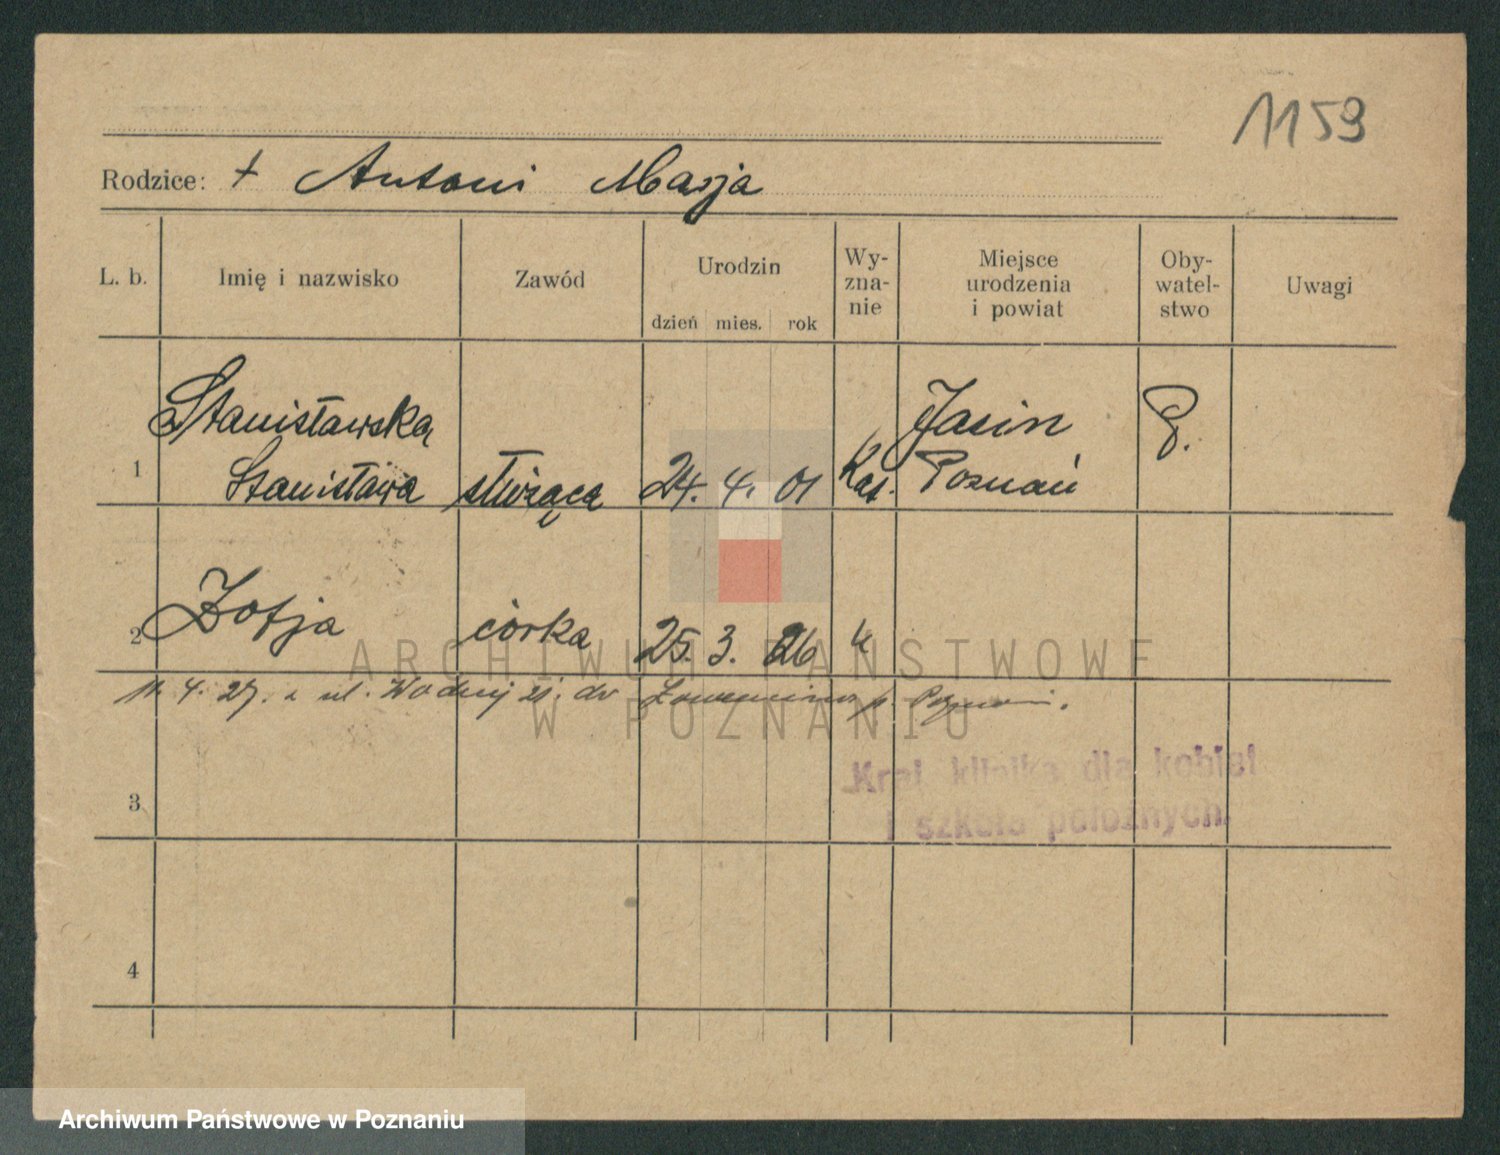 1159
Rodzice: + Antoni Marja
L. b. Imię i nazwisko Zawód Urodzin Wy-zna-nie Miejsce urodzenia i powiat Oby-watel-stwo Uwagi
dzień mies. rok
Stanisławska Jasin P.
1 Stanisława służąca 24. 4. 01 Kat. Poznań
2 Zofja córka 25. 3. 26 "
4. 27. z ul. Wodnej 21. do
ARCHIWUM PAŃSTWOWE
W POZNANIU
Kraj. klinika dla kobiet
i szkoła położnych
3
4
Archiwum Państwowe w Poznaniu